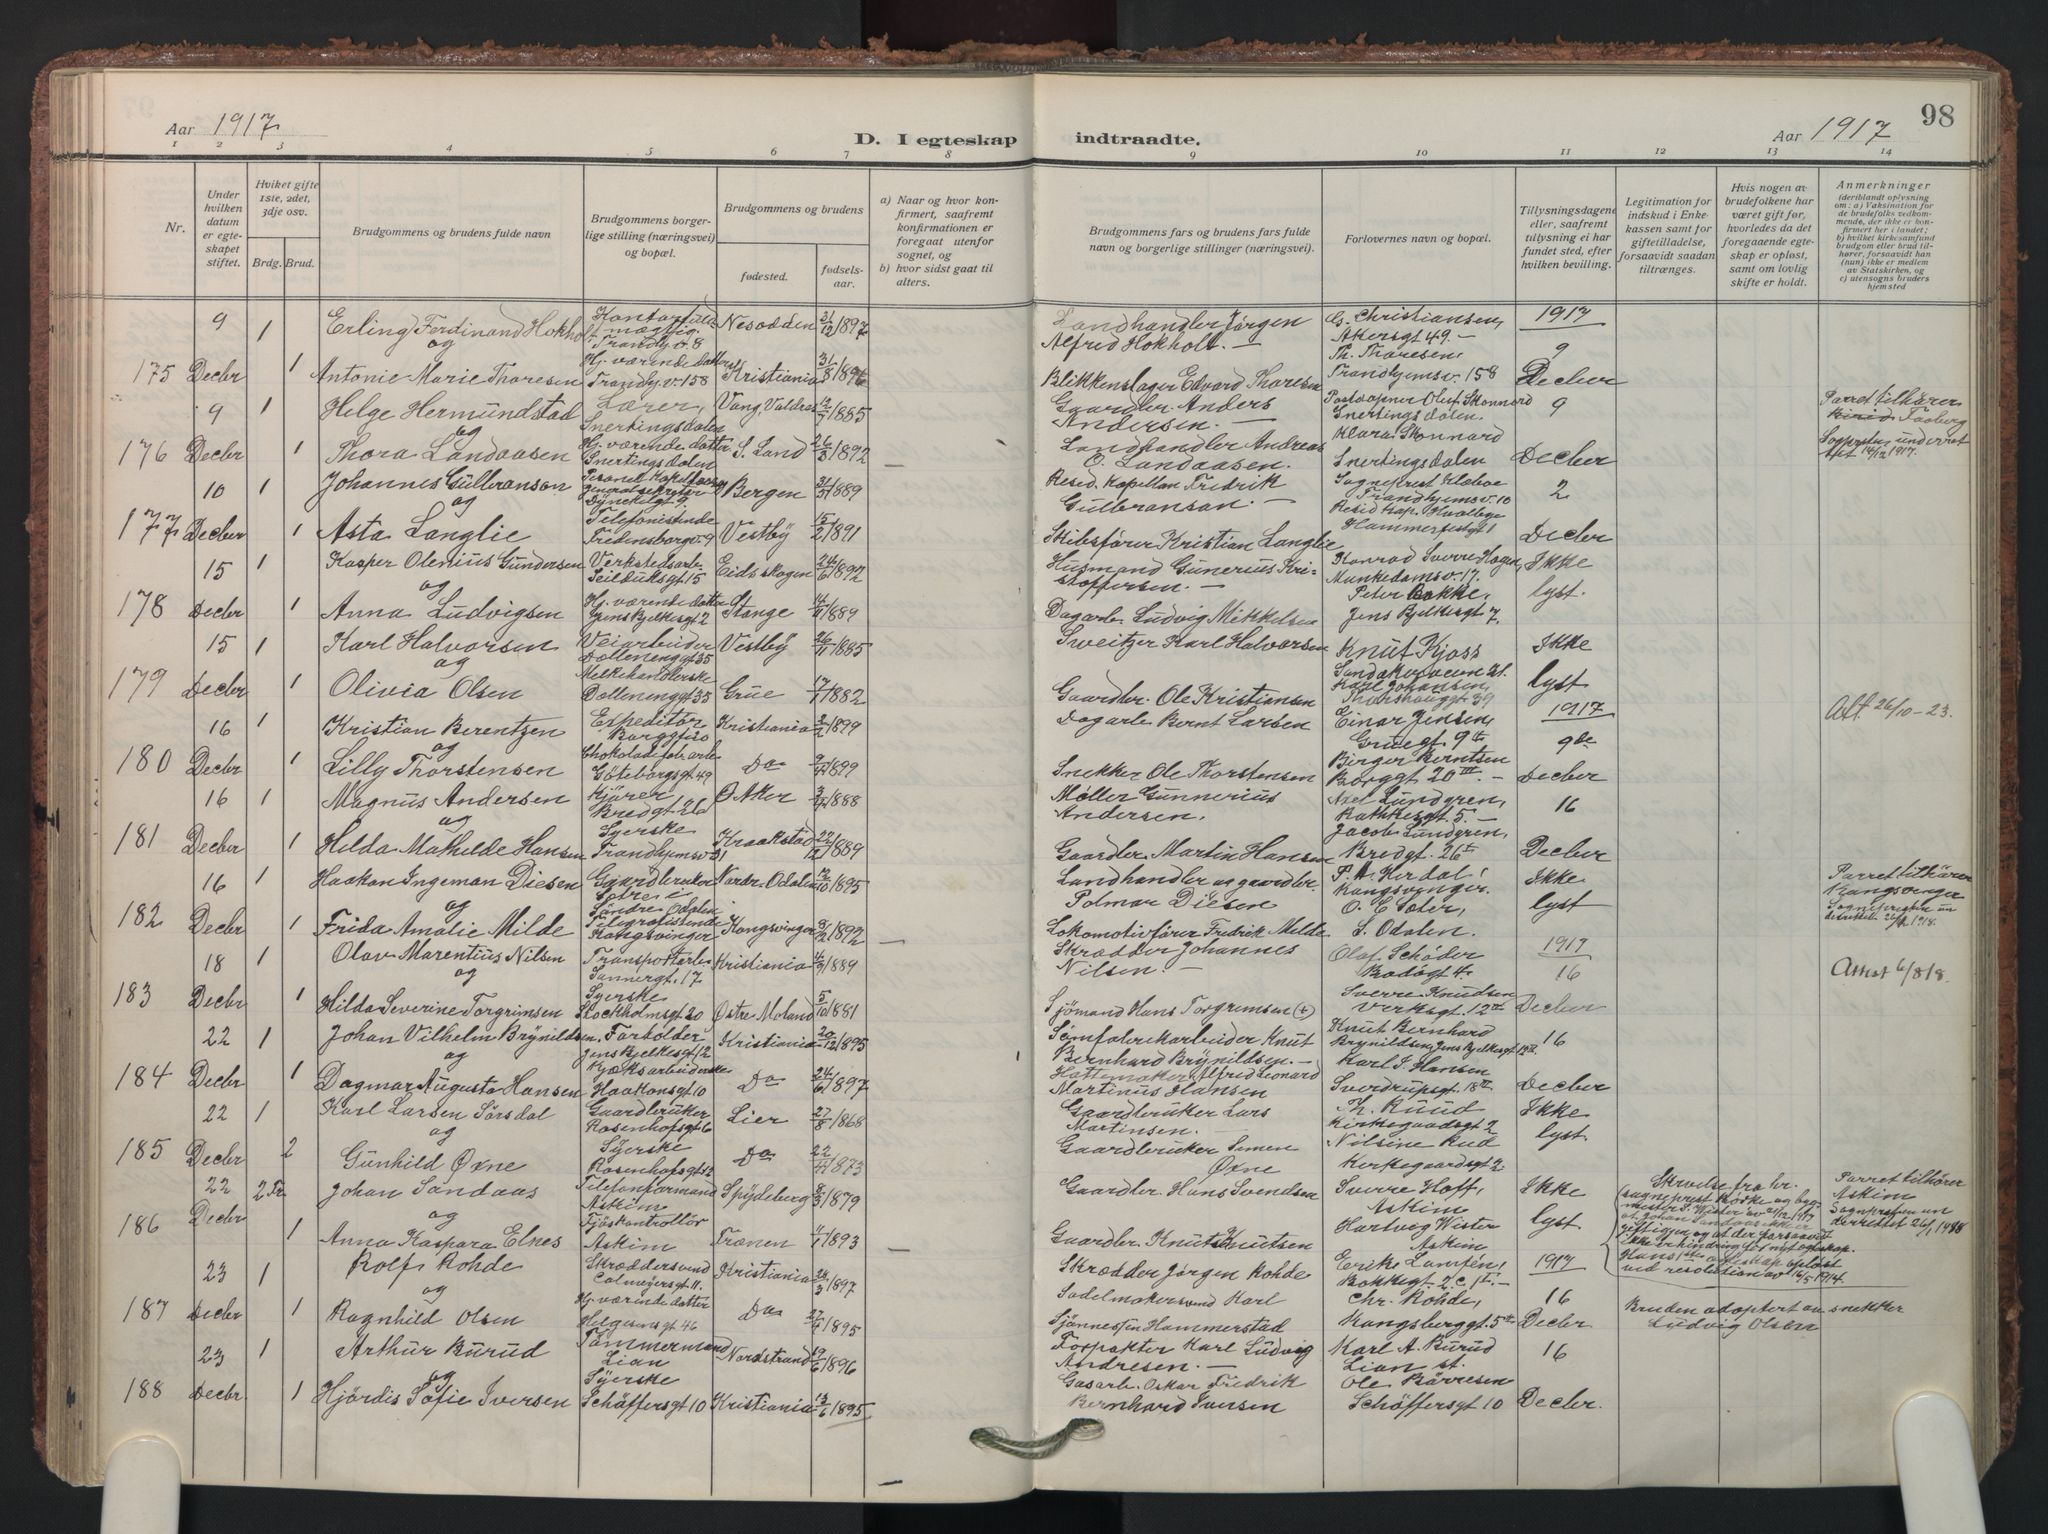 98
Aar 1917
D. I egteskap indtraadte.
Aar 1917
1 2 3 4 5 6 7 8 9 10 11 12 13 14
Nr.
Under hvilken datum er egteskapet stiftet.
Hviket gifte 1ste, 2det, 3dje osv.
Brdg. Brud.
Brudgommens og brudens fulde navn
Brudgommens borgerlige stilling (næringsvei) og bopæl.
Brudgommens og brudens
fødested.
fødselsaar.
a) Naar og hvor konfirmert, saafremt konfirmationen er foregaat utenfor sognet, og
b) hvor sidst gaat til alters.
Brudgommens fars og brudens fars fulde navn og borgerlige stillinger (næringsvei).
Forlovernes navn og bopæl.
Tillysningsdagene eller, saafremt tillysning ei har fundet sted, efter hvilken bevilling.
Legitimation for indskud i Enkekassen samt for giftetilladelse, forsaavidt saadan tiltrænges.
Hvis nogen av brudefolkene har været gift før, hvorledes da det foregaaende egteskap er opløst, samt om lovlig skifte er holdt.
Anmerkninger (deriblandt oplysning om: a) Vaksination for de brudefolks vedkommende, der ikke er konfirmert her i landet; b) hvilket kirkesamfund brudgom eller brud tilhører, forsaavidt han (hun) ikke er medlem av Statskirken, og c) utensogns bruders hjemsted
9 1 Erling Ferdinand Hokholt Nesodden 31/12 1897 Landhandler Jørgen Alfred Hokholt. — G. Christiansen, Akersgt 49. — 1917
og
175 Decbr 1 Antonie Marie Thoresen Hj. værende datter Trondhj.v. 158 Kristiania 31/8 1896 Blikkenslager Edvard Thoresen Th. Thoresen, Trondhjemsv. 158 9 Decber
9 1 Helge Hermundstad Lærer, Snertingsdalen Vang, Valdres 12/7 1885 Gaardbr. Anders Andersen. — Postaapner Olaf Skonnord Snertingsdalen. 9 Parret tilhører
og
176 Decbr 1 Thora Landaasen Hj. værende datter Snertingsdalen S. Land 26/3 1892 — Landhandler Andreas O. Landaasen. Klara Skonnard Snertingsdalen Decber
10 1 Johannes Gulbranson Bergen 31/3 1889 Resid. Kapellan Fredrik Gulbranson. Sogneprest Klaboe Trondhjemsv. 10 2
og
177 Decber 1 Asta Langlie Telefonistinde Fredensborgv. 9 Vestby 15/2 1891 Skibsfører Kristian Langlie Hammerfestgt 1 Decber
15 1 Kasper Olenius Gundersen Verkstedsarb. Seilduksgt 15 Eidsskogen 24/6 1892 Husmand Gunerius Kristoffersen. — Konrad Sverre Hagen, Munkedamsv. 17. Ikke
og
178 Decbr 1 Anna Ludvigsen Hj. værende datter Jens Bjelkesgt 2 Stange 14/11 1889 Dagarb. Ludvig Mikkelsen Peter Bakke, Jens Bjelkesgt 7. lyst.
15 1 Karl Halvorsen Veiarbeider Dælenenggt 35 Vestby 26/11 1885 Sweitzer Karl Halvorsen Knut Kjoss Sandakerveien 21. Ikke
og
179 Decbr 1 Olivia Olsen Melkehandlerske Dælenenggt 35 Grue 17/1 1882 Gaardbr. Ole Kristiansen Karl Johansen, lyst
16 1 Kristian Berentzen Expeditør Borggt 20 Kristiania 2/2 1899 Dagarb. Bernt Larsen Einar Jensen, Gruegt. 9 1917 Att. 26/10-23.
og
180 Decbr 1 Lilly Thorstensen Chokoladefabr.arb. Göteborgsgt 49 Do 1899 Snekker Ole Thorstensen Birger Berntsen Borggt 20 III. — 9de Decber
16 1 Magnus Andersen Kjører Bredgt. 26 Ø. Aker 1888 Møller Gunnerius Andersen. Axel Lundgren, Rathkesgt 5. — 16
og
181 Decber 1 Hilda Mathilde Hansen Syerske Trondhjemsv. 31 Kraakstad 22/12 1889 Gaardbr. Martin Hansen Jacob Lundgren, Bredgt. 26 I Decber
16 1 Haakon Ingeman Diesen Gaardbruker Sætre i Søndre Odalen Nordr. Odalen 12/10 1895 Landhandler og gaardbr. Polmar Diesen P. A. Herdal, Kongsvinger. Ikke Parret tilhører Kongsvinger
og
182 Decbr 1 Frida Amalie Milde Telegrafistinde Kongsvinger Kongsvinger 1892 — Lokomotivfører Fredrik Milde O. E. Sæter, S. Odalen. lyst
18 1 Olav Marentius Nilsen Transportarb. Sannergt. 17 Kristiania 4/9 1889 Skrædder Johannes Nilsen. — Olaf Schøder Bodøgt 4. 1917 16 Attest 6/8 18.
og
183 Decbr 1 Hilda Severine Torgrimsen Syerske Stockholmsgt 20 Østre Moland 5/10 1881 Sjømand Hans Torgrimsen (+) Sverre Knudsen Verksgt. 12 Decber
22 1 Johan Vilhelm Brynildsen. Forholder Jens Bjelkesgt 12 Kristiania 20/12 1895 Sømfabrekarbeider Knut Bernhard Brynildsen. — Knut Bernhard Brynildsen, Jens Bjelkesgt 12 16
og
184 Decbr 1 Dagmar Augusta Hansen Kjæksarbeiderske Haakonsgt 10 Do 24/6 1897 Hattemaker Alfred Leonard Martinus Hansen Karl J. Hansen Sverdrupsgt. 18 Decber
22 1 Karl Larsen Sørsdal Gaardbruker Rosenhofsgt 6 Lier 27/8 1868 Gaardbruker Lars Martinsen. — Th. Ruud Kirkegaardsgt 2 Ikke
og
185 Decbr 2 Gunhild Øxne Syerske Rosenhofsgt 12 Do 1873 Gaardbruker Simen Øxne Nilsine Rud Kirkegaardsgt 2. lyst
22 2 Fr. Johan Sandaas Telefonformand Askim Spydeberg 1879 Gaardbr. Hans Svendsen Sverre Hoff, Askim Ikke Parret tilhører Askim
og
186 Decbr 1 Anna Kaspara Elnes Fjøskontrollør Askim Trænen 1893 — Gaardbr. Knut Knutsen Hartvig Wister Askim lyst
23 1 Rolf Rohde Skræddersvend Colmeyersgt. 11. Kristiania 24/3 1897 Skrædder Jørgen Rohde Bokkegt. 2 1917
og
187 Decbr 1 Ragnhild Olsen Hj. værende datter Helgesensgt 46 Do 27/4 1895 Sadelmakersvend Karl Hammerstad Chr. Rohde, Kongsberggt. 5 16 Decber Bruden adoptert av snekker Ludvig Olsen
23 1 Arthur Burud Tømmermand Lian Nordstrand 19/6 1896 Forpakter Karl Ludvig Andresen. — Karl A. Burud Lian st. 16
og
188 Decbr 1 Hjørdis Sofie Iversen Syerske Schäffersgt 10 Kristiania 13/6 1895 Gasarb. Oskar Fredrik Bernhard Iversen Ole Børresen Schäffersgt 10 Decbr.